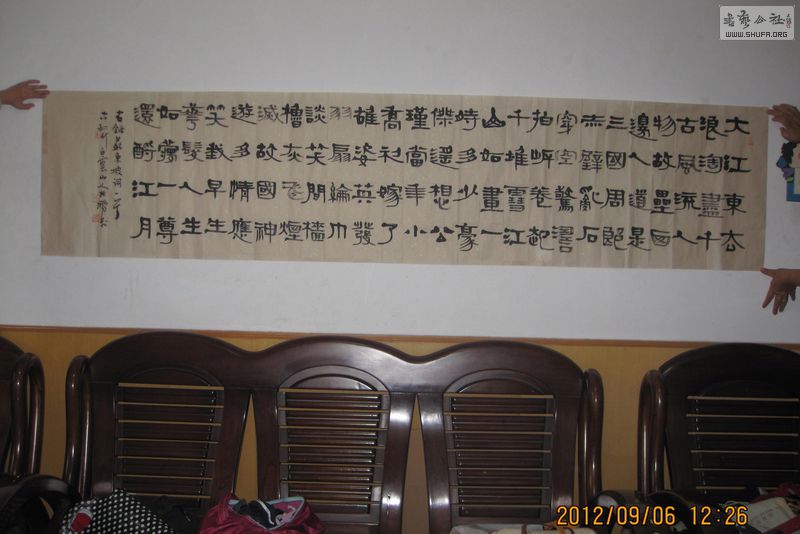 大江東去
浪淘盡千
古風流人
物故壘西
邊人道是
三國周郎
赤壁亂石
穿空驚濤
拍岸卷起
千堆雪江
山如畫一
時多少豪
傑遙想公
瑾當年小
喬初嫁了
雄姿英發
羽扇綸巾
談笑間檣
櫓灰飛煙
滅故國神
遊多情應
笑我早生
華髮人生
如夢一尊
還酹江月
右錄蘇東坡詞一首
白雲山人
書藝公社
WWW.SHUFA.ORG
2012/09/06 12:26